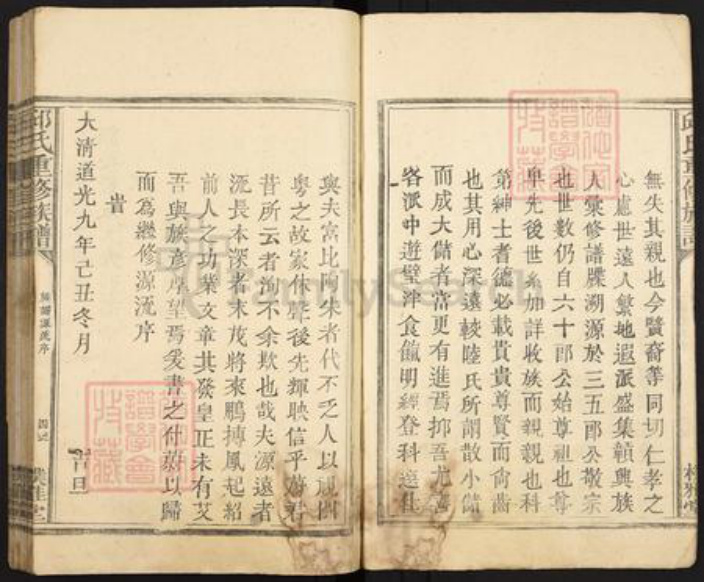 邱氏重修族譜
無失其親也今賢裔等同切仁孝之
心慮世遠人繁地遐派盛集贛興族
人彙修譜牒溯源於三五郎公敬宗
也世數仍自六十郎公始尊祖也尊
卑先後世系加詳收族而親親也科
第紳士者德必載貴貴尊賢而尚齒
也其用心深遠較陸氏所謂散小儲
而成大儲者富更有進焉抑吾尤
各派中遊璧泮食餼明經登科達仕
與夫富比陶朱者代不乏人以視閩
粵之故家休聲後先輝映信乎蔚若
昔所云者洵不余欺也哉夫源遠者
流長本深者末茂將來鵬摶鳳起紹
前人之功業文章其發皇正未有艾
吾與族彥厚望焉爰書之付薪以歸
而為繼修源流序
旹
大清道光九年己丑冬月
吉旦
邱氏重修族譜
源流序
堂
FamilySearch
譜學會
收藏
譜學會
收藏